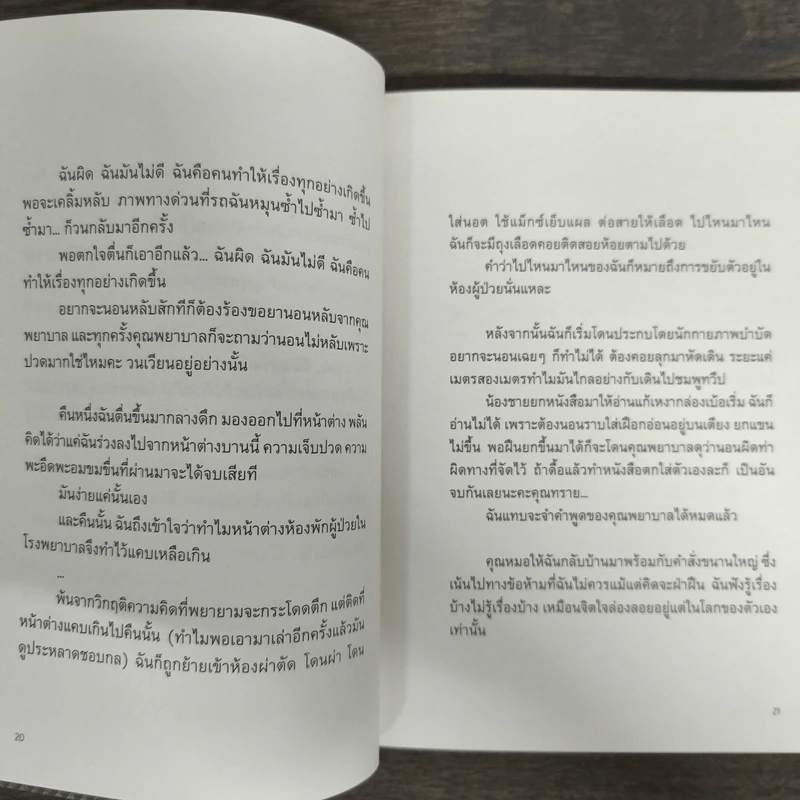 ฉันผิด ฉันมันไม่ดี ฉันคือคนทำให้เรื่องทุกอย่างเกิดขึ้น
พอจะเคลิ้มหลับ ภาพทางด่วนที่รถฉันหมุนซ้ำไปซ้ำมา ซ้ำไป
ซ้ำมา... ก็วนกลับมาอีกครั้ง
พอตกใจตื่นก็เอาอีกแล้ว... ฉันผิด ฉันมันไม่ดี ฉันคือคน
ทำให้เรื่องทุกอย่างเกิดขึ้น
อยากจะนอนหลับสักทีก็ต้องร้องขอยานอนหลับจากคุณ
พยาบาล และทุกครั้งคุณพยาบาลก็จะถามว่านอนไม่หลับเพราะ
ปวดมากใช่ไหมคะ วนเวียนอยู่อย่างนั้น
คืนหนึ่งฉันตื่นขึ้นมากลางดึก มองออกไปที่หน้าต่าง พลัน
คิดได้ว่าแค่ฉันร่วงลงไปจากหน้าต่างบานนี้ ความเจ็บปวด ความ
พะอืดพะอมขมขื่นที่ผ่านมาจะได้จบเสียที
มันง่ายแค่นั้นเอง
และคืนนั้น ฉันถึงเข้าใจว่าทำไมหน้าต่างห้องพักผู้ป่วยใน
โรงพยาบาลจึงทำไว้แคบเหลือเกิน
...
พ้นจากวิกฤติความคิดที่พยายามจะกระโดดตึก แต่ติดที่
หน้าต่างแคบเกินไปคืนนั้น (ทำไมพอเอามาเล่าอีกครั้งแล้วมัน
ดูประหลาดชอบกล) ฉันก็ถูกย้ายเข้าห้องผ่าตัด โดนผ่า โดน
20
ใส่นอต ใช้แม็กซ์เย็บแผล ต่อสายให้เลือด ไปไหนมาไหน
ฉันก็จะมีถุงเลือดคอยติดสอยห้อยตามไปด้วย
คำว่าไปไหนมาไหนของฉันก็หมายถึงการขยับตัวอยู่ใน
ห้องผู้ป่วยนั่นแหละ
หลังจากนั้นฉันก็เริ่มโดนประกบโดยนักกายภาพบำบัด
อยากจะนอนเฉยๆ ก็ทำไม่ได้ ต้องคอยลุกมาหัดเดิน ระยะแค่
เมตรสองเมตรทำไมมันไกลอย่างกับเดินไปชมพูทวีป
น้องชายยกหนังสือมาให้อ่านแก้เหงากล่องเบ้อเริ่ม ฉันก็
อ่านไม่ได้ เพราะต้องนอนราบใส่เฝือกอ่อนอยู่บนเตียง ยกแขน
ไม่ขึ้น พอฝืนยกขึ้นมาได้ก็จะโดนคุณพยาบาลดุว่านอนผิดท่า
ผิดทางที่จัดไว้ ถ้าดื้อแล้วทำหนังสือตกใส่ตัวเองละก็ เป็นอัน
จบกันเลยนะคะคุณทราย...
ฉันแทบจะจำคำพูดของคุณพยาบาลได้หมดแล้ว
คุณหมอให้ฉันกลับบ้านมาพร้อมกับคำสั่งขนานใหญ่ ซึ่ง
เน้นไปทางข้อห้ามที่ฉันไม่ควรแม้แต่คิดจะฝ่าฝืน ฉันฟังรู้เรื่อง
บ้างไม่รู้เรื่องบ้าง เหมือนจิตใจล่องลอยอยู่แต่ในโลกของตัวเอง
เท่านั้น
21